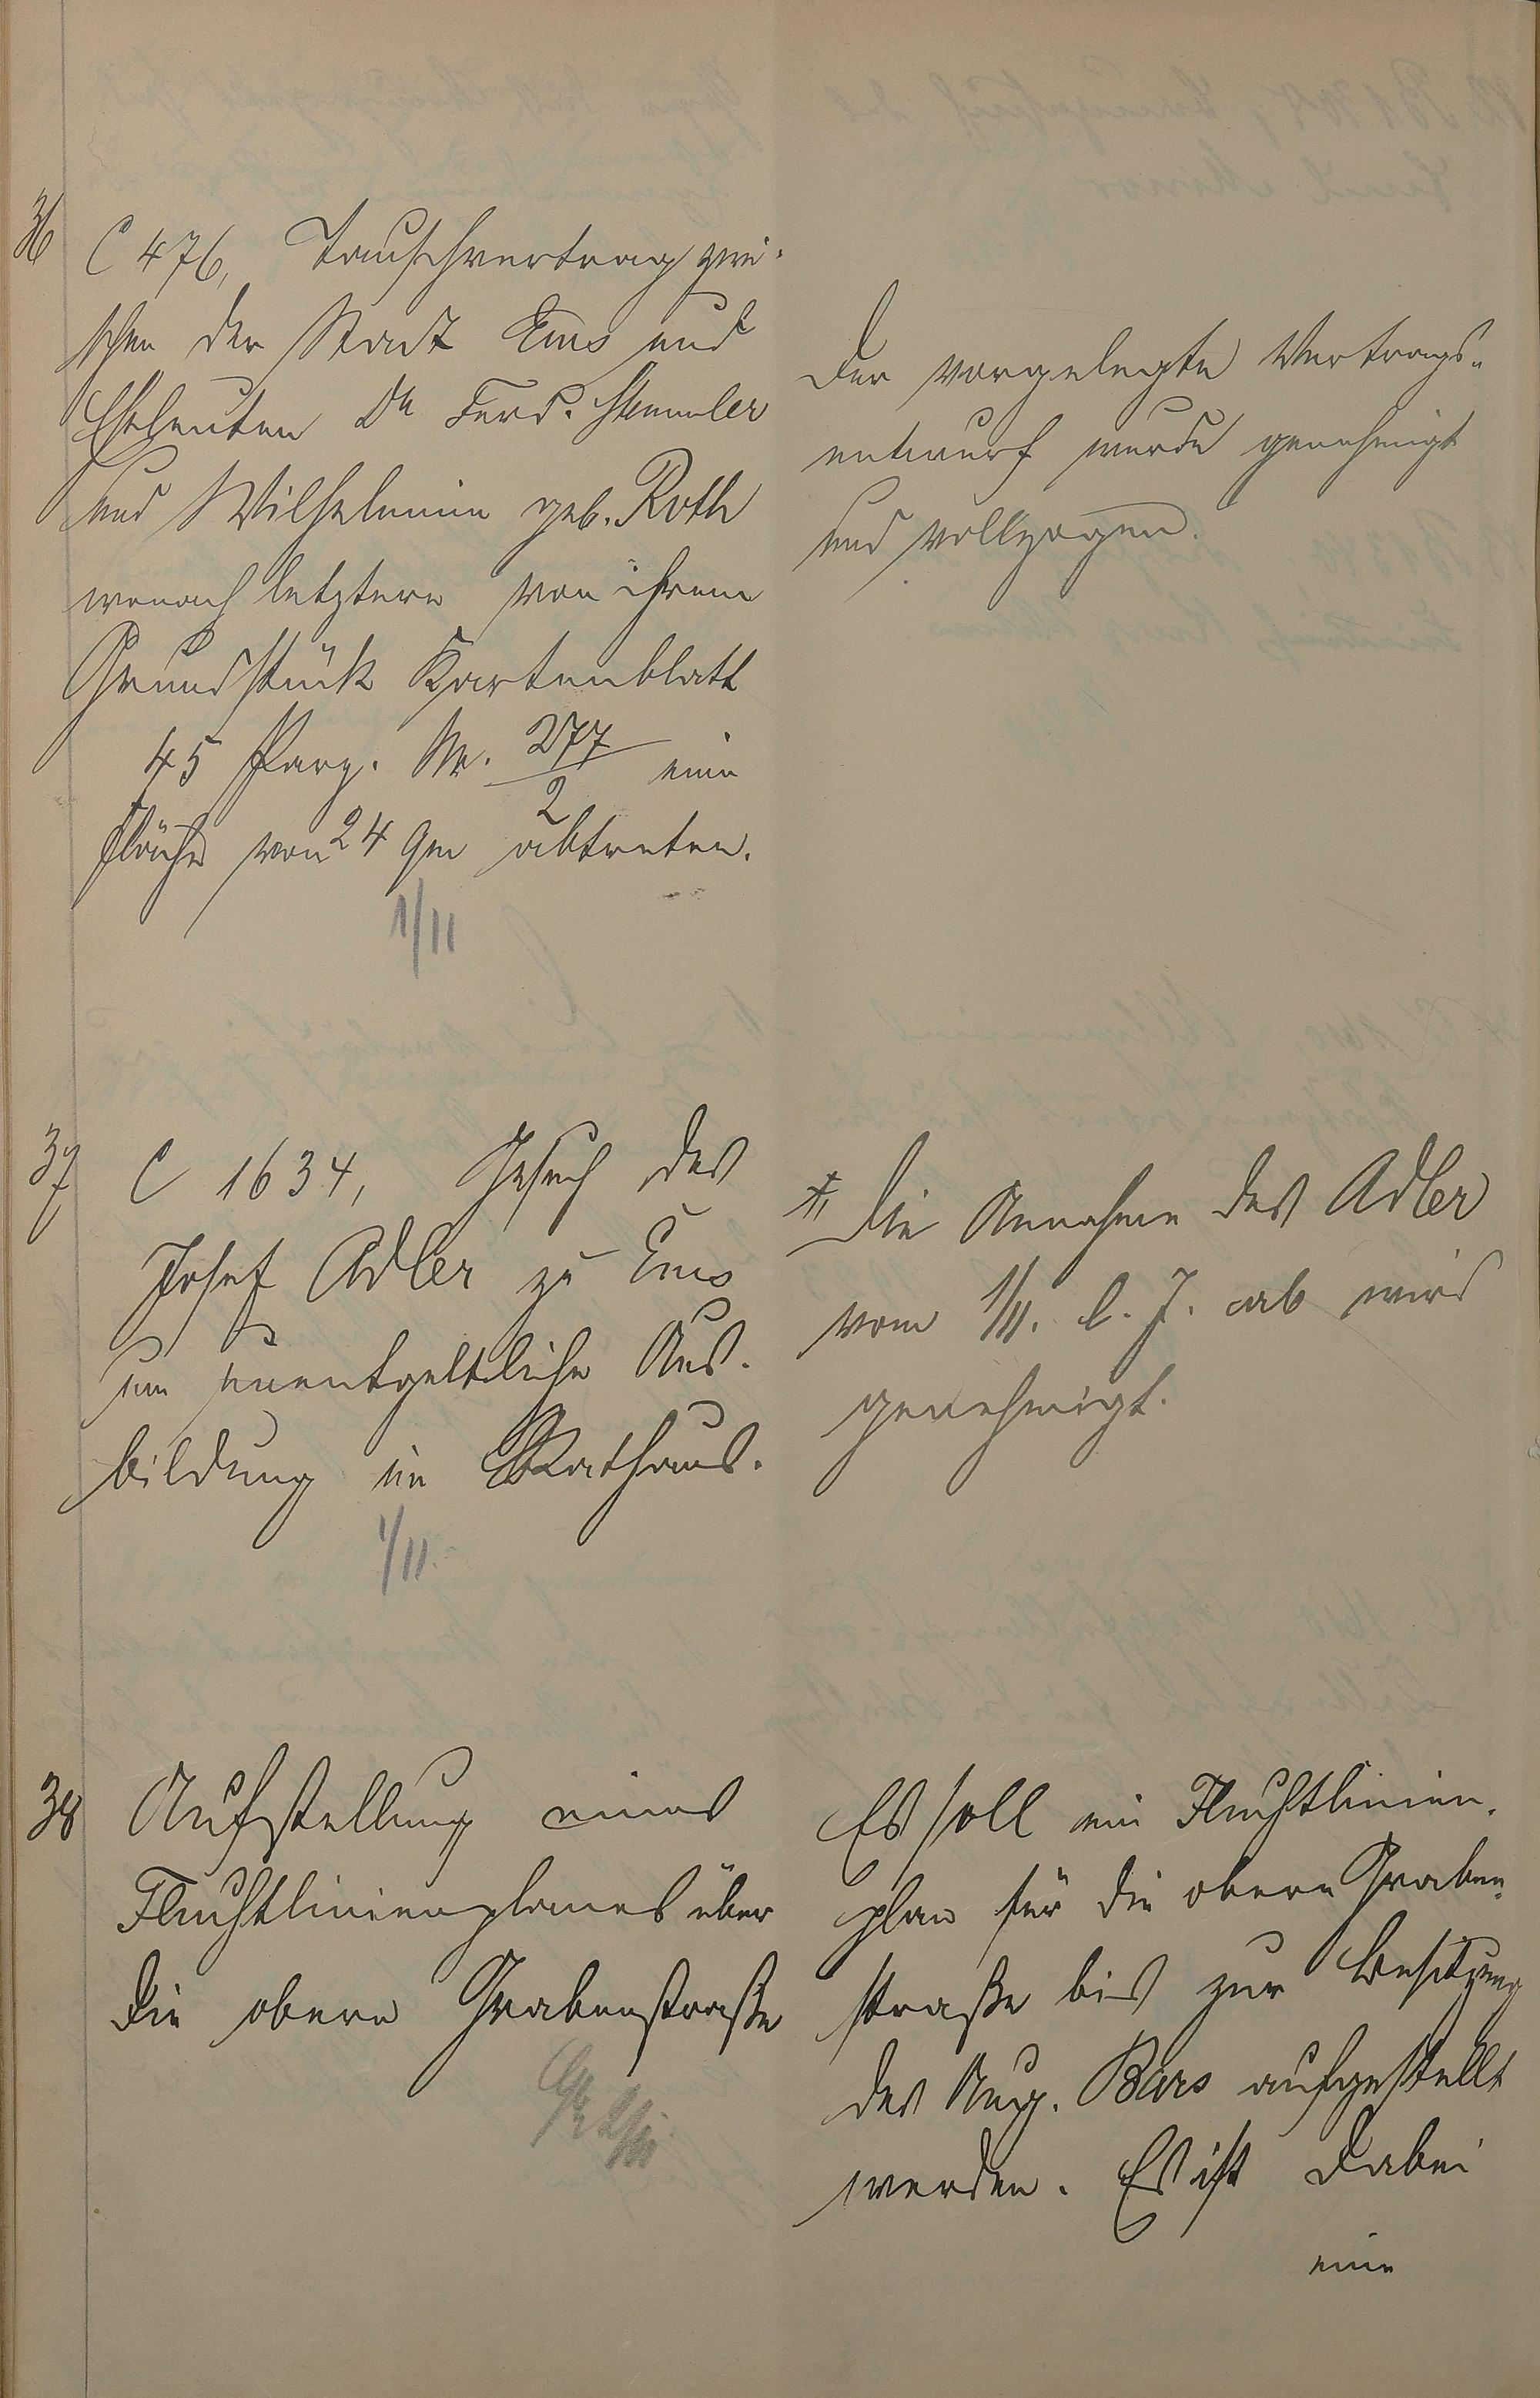 36
C 476, Tauschvertrag zwi-
schen der Stadt Ems und
Eheleuten Dr Ferd. Stemmler
und Wilhelmine geb. Roth
wonach letztere von ihrem
Grundstück Kartenblatt
45 Parz. Nr. 277/2 eine
Fläche von 24 qm abtreten.
1/II
Der vorgelegte Vertrags-
entwurf wurde genehmigt
und vollzogen.
37
C 1634, Gesuch des
Josef Adler zu Ems
um unentgeltliche Aus-
bildung im Rathaus.
1/II.
Die Annahme des Adler
vom 1/II. l. J. ab wird
genehmigt.
38
Aufstellung eines
Fluchtlinienplanes über
die obere Grabenstraße
Es soll ein Fluchtlinien-
plan für die obere Graben-
straße bis zur Besitzung
des Aug. Bars aufgestellt
werden. Es ist dabei
eine